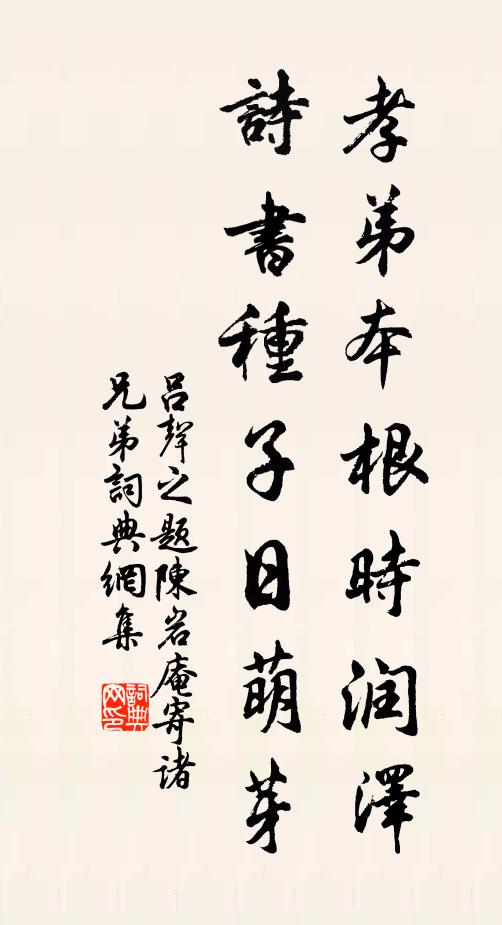 孝弟本根時润澤
詩書種子日萌芽
吕聲之题陳岩庵寄諸
兄弟詞典網集
詞典網印